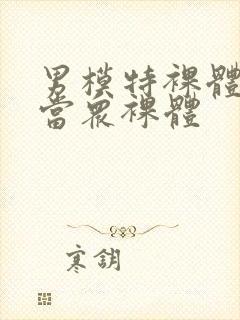 男模特裸體
當眾裸體
寒鈅